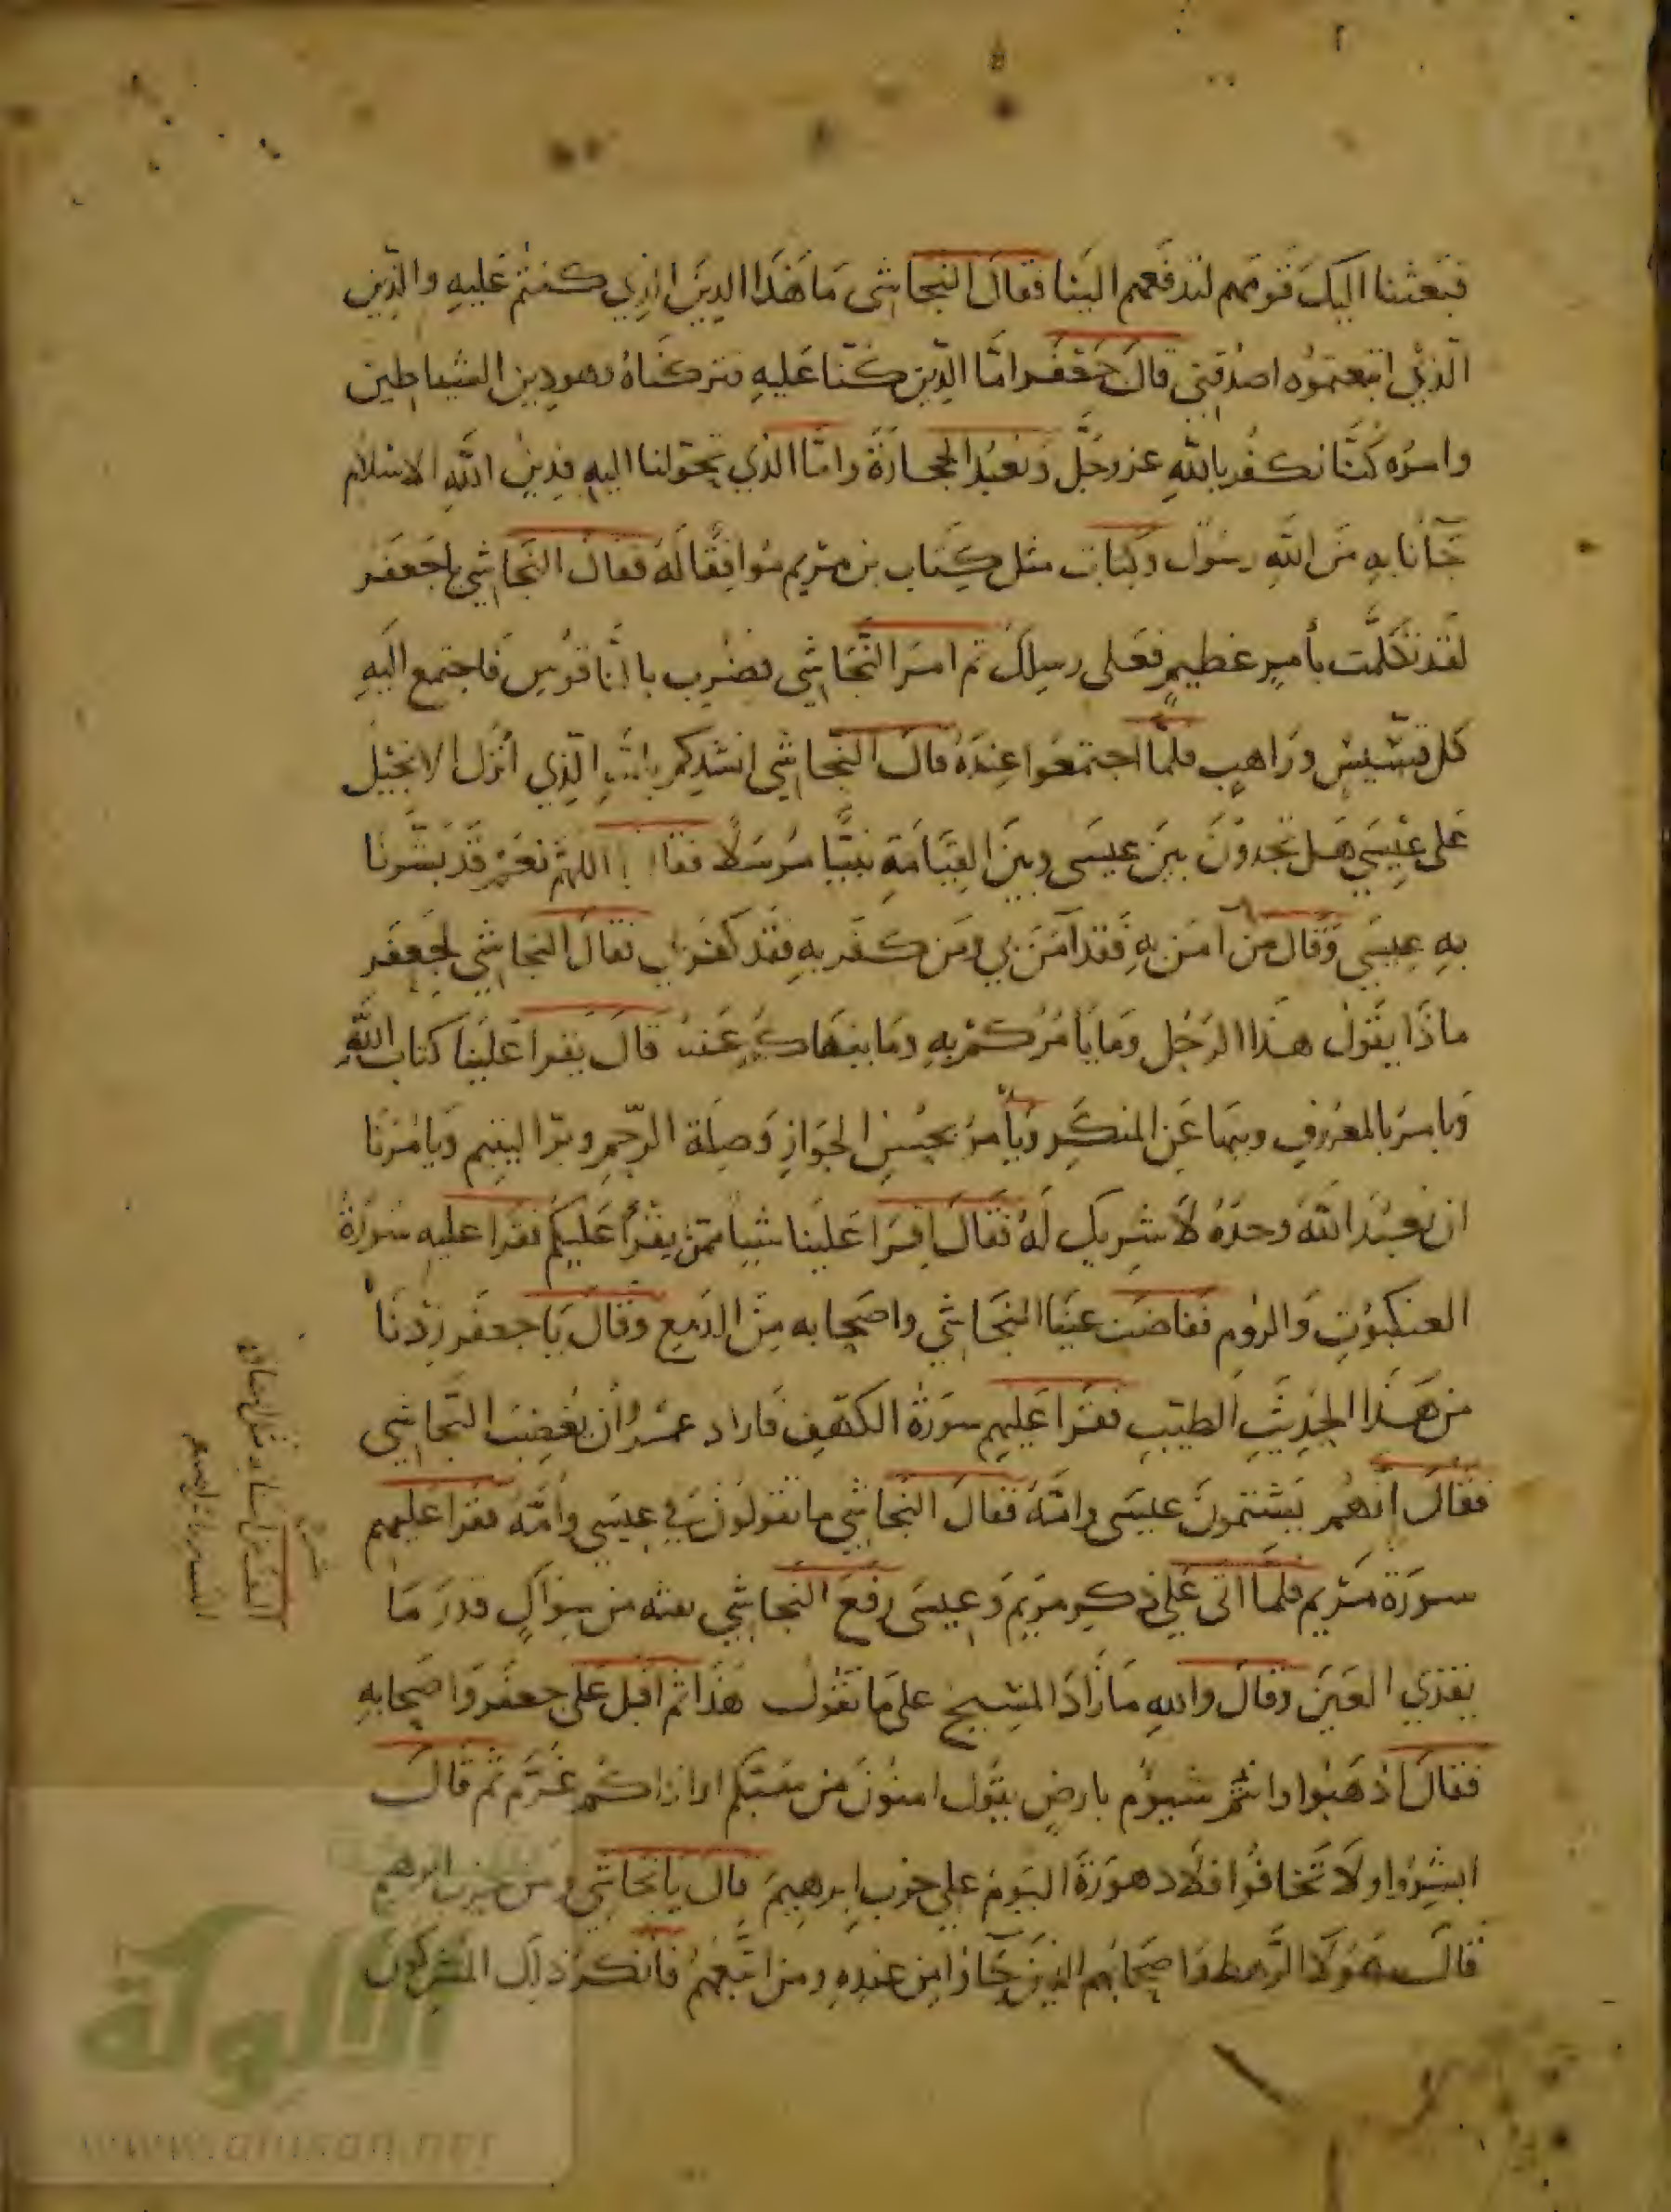 فبعثنا اليك قومهم لتدفعهم الينا فقال النجاشي ما هذا الدين الذي كنتم عليه والدين
الذي اتبعتموه اصدقني قال جعفر اما الدين كنا عليه فتركناه فهو دين الشيطان
وامره كنا نكفر بالله عز وجل ونعبد الحجارة واما الذي تحولنا اليه فدين الله الاسلام
جآنا به من الله رسول وكتاب مثل كتاب بن مريم موافقا له فقال النجاشي يا جعفر
لقد تكلمت بأمر عظيم فعلى رسلك ثم امر النجاشي فضرب بالناقوس فاجتمع اليه
كل قسيس وراهب فلما اجتمعوا عنده قال النجاشي انشدكم بالله الذي أنزل الانجيل
على عيسى هل تجدون بين عيسى وبين القيامة نبيا مرسلا اللهم نعم قد بشرنا
به عيسى وقال من آمن به فقد آمن بي ومن كفر به فقد كفر بي فقال النجاشي لجعفر
ماذا يقول هذا الرجل وما يأمركم به وما ينهاكم عنه قال يقرا علينا كتاب الله
ويامر بالمعروف وينها عن المنكر ويأمر بحسن الجوار وصلة الرحم وبر اليتيم ويامرنا
ان نعبد الله وحده لا شريك له فقال اقرا علينا شيا مما يقرأ عليكم فقرا عليه سورة
العنكبوت والروم ففاضت عينا النجاشي واصحابه من الدمع وقال يا جعفر زدنا
من هذا الحديث الطيب فقرا عليهم سورة الكهف فاراد عمرو أن يغضب النجاشي
فقال انهم يشتمون عيسى وامه فقال النجاشي ما تقولون في عيسى وأمه فقرا عليهم
سورة مريم فلما اتى على ذكر مريم وعيسى رفع النجاشي نفثه من سواك قدر ما
يقذي العين وقال والله ما زاد المسيح على ما تقول هذا ثم اقبل على جعفر واصحابه
فقال اذهبوا وانتم سيوم بارض يقول امنون من سبكم او اذاكم غرم ثم قال
ابشروا ولا تخافوا فلا دهورة اليوم على حزب ابرهيم قال يا نجاشي ومن حزب ابرهيم
قال هؤلا الرهط واصحابهم الذين جآؤا من عنده ومن اتبعهم فانكر ذلك المشركون
الألوكة
www.alukah.net